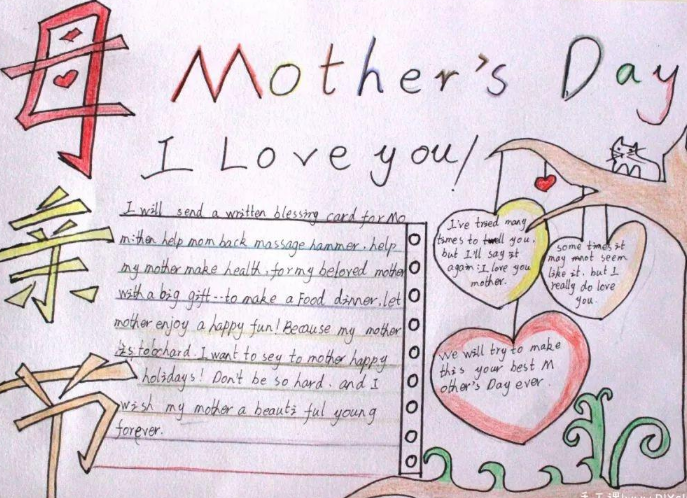 母亲节
Mother's Day
I Love you!
I will send a written blessing card for Mo
mither help mom back massage hammer. help
my mother make health, for my beloved mother
with a big gift--to make a Food dinner. let
mother enjoy a happy fun! Because my mother
is to hard. I want to sey to mother happy
holidays! Don't be so hard. and I
wish my mother a beauti ful young
forever.
I've tried many
times to tell you.
but I'll say it
again: I love you
mother.
some times it
may not seem
like it. but I
really do love
you.
We will try to make
this your best M
other's Day ever.